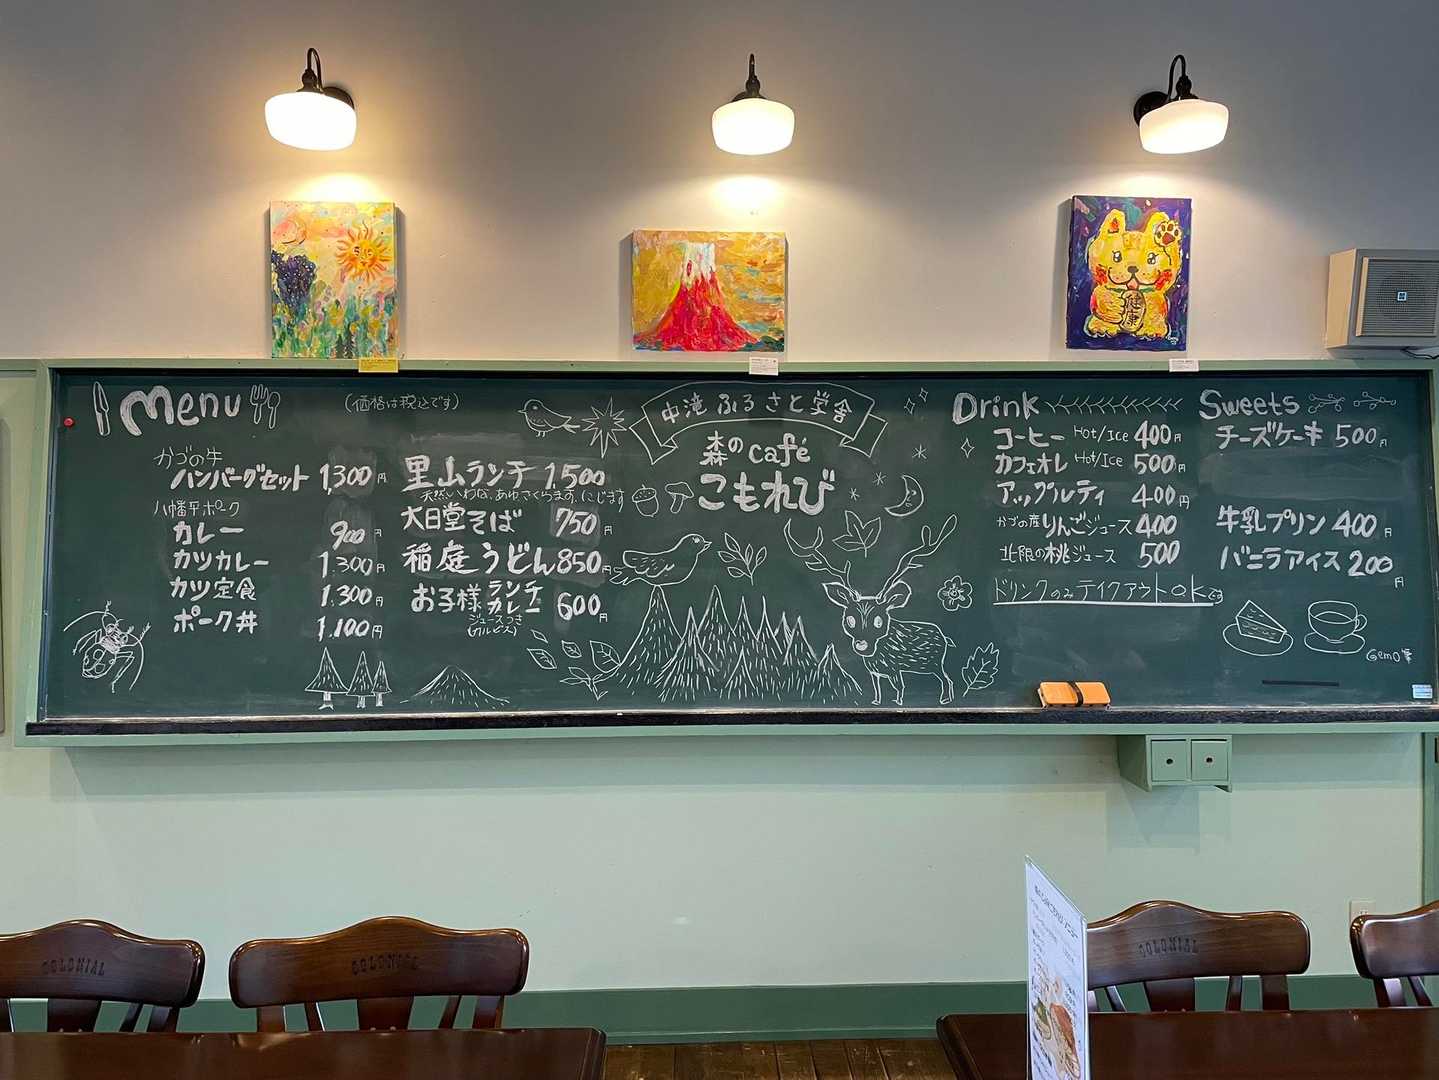 Menu
(価格は税込です)
かづの牛
ハンバーグセット 1,300円
八幡平ポーク
カレー 900円
カツカレー 1,300円
カツ定食 1,300円
ポーク丼 1,100円
里山ランチ 1,500
大日堂そば 750円
稲庭うどん 850円
お子様 ランチ カレー 600円
ジュースつき
(カルピス)
中滝ふるさと学舎
森のcafé
こもれび
Drink
コーヒー Hot/Ice 400円
カフェオレ Hot/Ice 500円
アップルティ 400円
かづの産りんごジュース 400
北限の桃ジュース 500
ドリンクのみテイクアウトok
Sweets
チーズケーキ 500円
牛乳プリン 400円
バニラアイス 200円
健康
COLONIAL
COLONIAL
COLONIAL